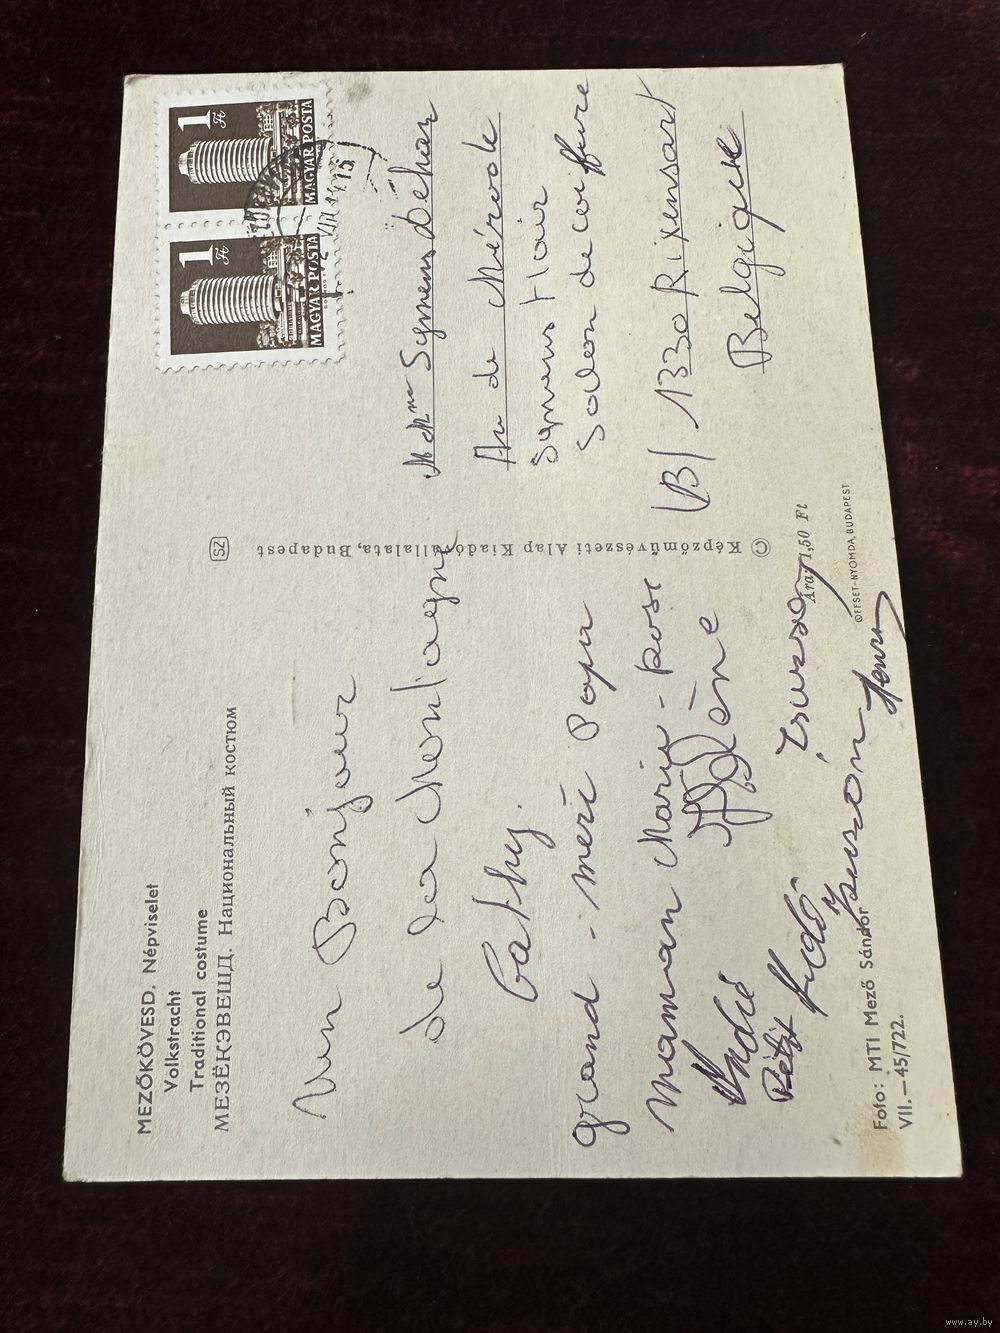 MEZŐKÖVESD. Népviselet
Volkstracht
Traditional costume
МЕЗЁКЭВЕШД. Национальный костюм
Un Bonjour
de la Montagne
Cathy.
grand-mere Papa
maman Marie-
Hélène
André
Zsuzsa
Henri
Foto: MTI Mező Sándor
VII.—45/722.
SZ
© Képzőművészeti Alap Kiadóvállalata, Budapest
Ára: 1,50 Ft
OFFSET-NYOMDA, BUDAPEST
1 Ft
MAGYAR POSTA
1 Ft
MAGYAR POSTA
15
M Mme Symens
Av de Mérode
Symens Hair
Salon de coiffure
B/ 1330 Rixensart
Belgique
www.ay.by